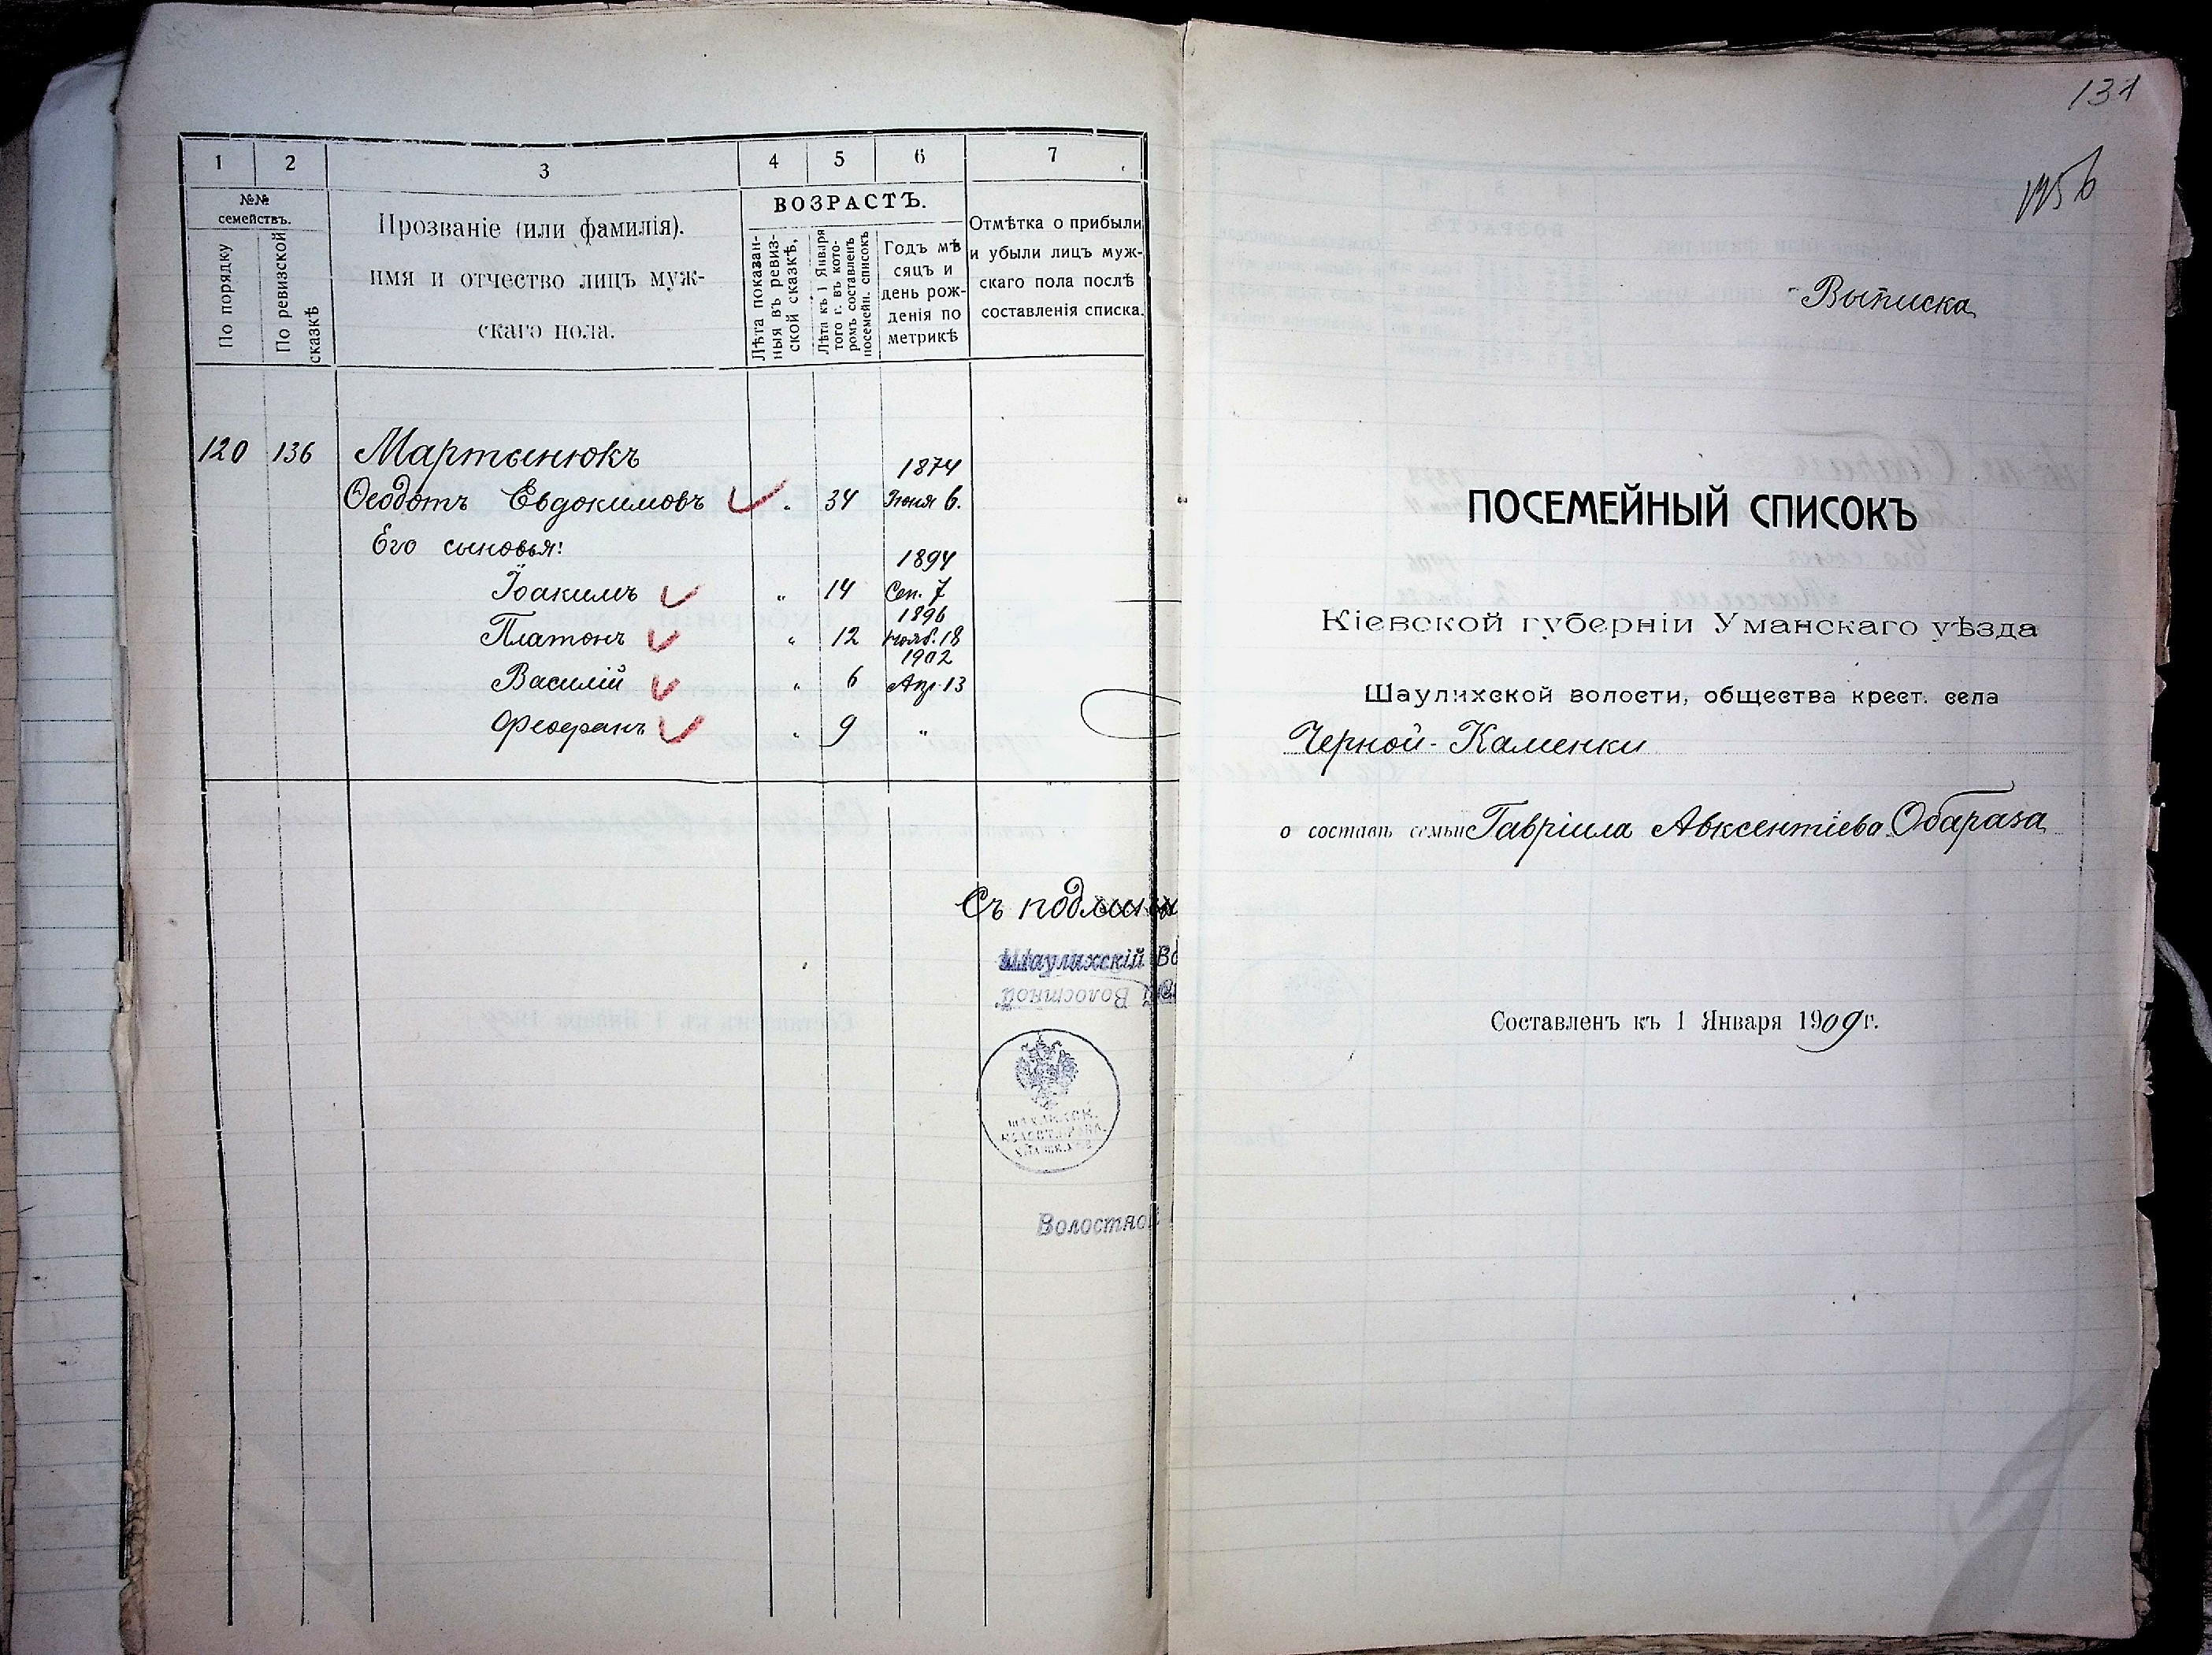 1 2 3 4 5 6 7
№№ семействъ.
По порядку
По ревизской сказкѣ
Прозваніе (или фамилія).
имя и отчество лицъ муж-
скаго пола.
ВОЗРАСТЪ.
Лѣта показан-
ныя въ ревиз-
ской сказкѣ,
Лѣта къ 1 Января
того г. въ кото-
ромъ составленъ
посемейн. списокъ
Годъ мѣ
сяцъ и
день рож-
денія по
метрикѣ
Отмѣтка о прибыли
и убыли лицъ муж-
скаго пола послѣ
составленія списка.
120 136 Мартынюкъ 1874
Ѳеодотъ Евдокимовъ " 34 Іюня 6.
Его сыновья: 1894
Іоакимъ " 14 Сен. 7
1896
Платонъ " 12 нояб. 18
1902
Василій " 6 Апр. 13
Феофанъ " 9 "
Съ подлинн
Шаулихскій Во
Волостной
Волостной
131
Выписка
ПОСЕМЕЙНЫЙ СПИСОКЪ
Кіевской губерніи Уманскаго уѣзда
Шаулихской волости, общества крест. села
Черной-Каменки
о составѣ семьи Гавріила Авксентіева Обараза
Составленъ къ 1 Января 1909 г.